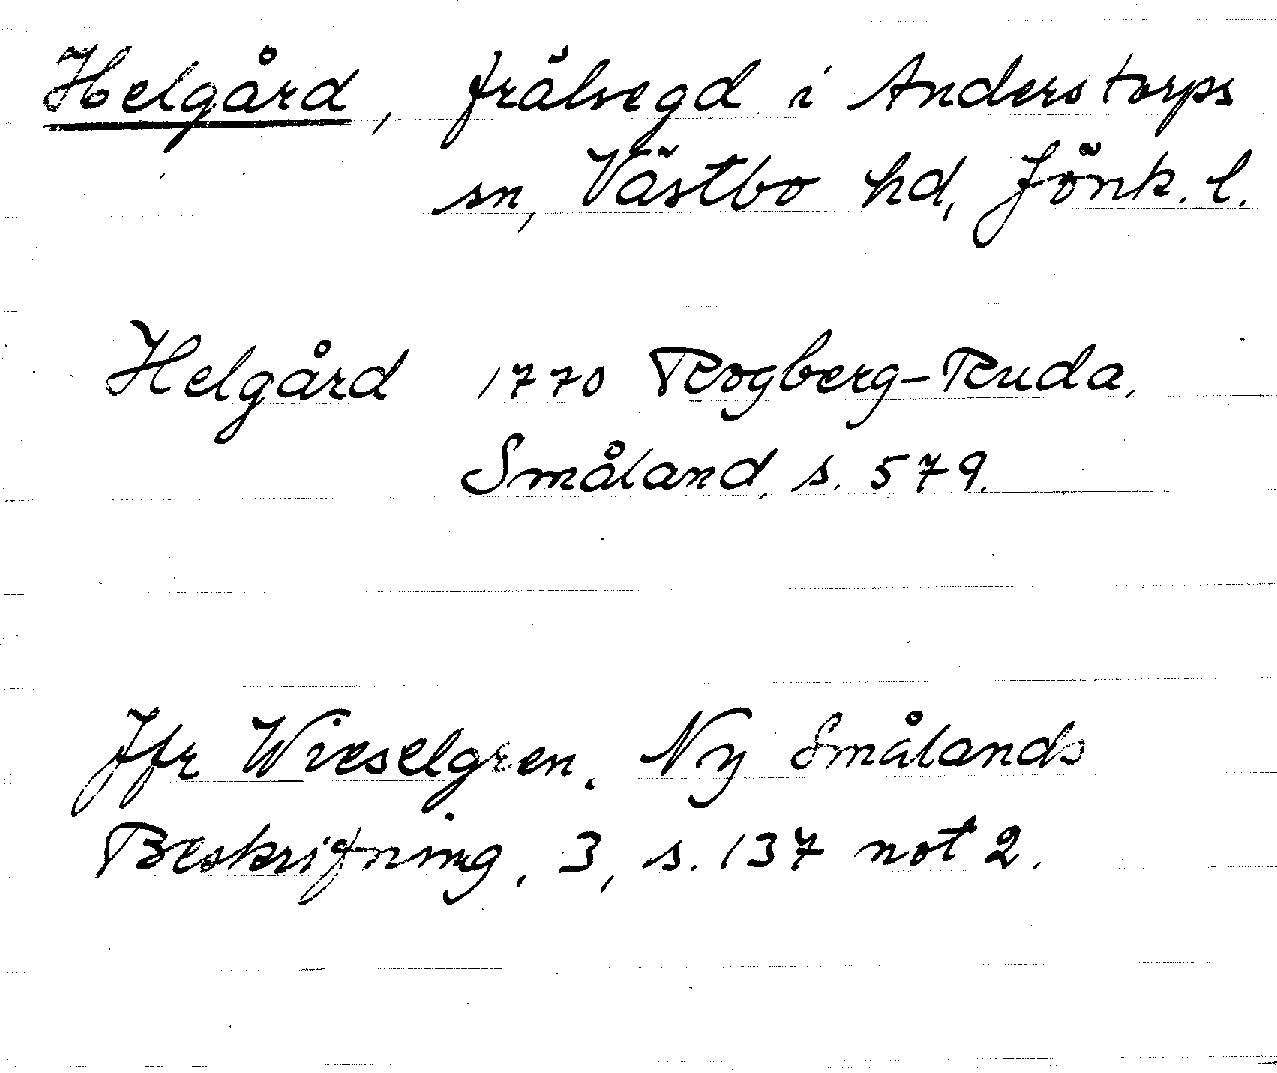 Helgård, frälsegd i Anderstorps
sn, Västbo hd, Jönk. l.
Helgård 1770 Rogberg-Ruda,
Småland, s. 579.
Jfr Wieselgren, Ny Smålands
Beskrifning, 3, s. 137 not 2.